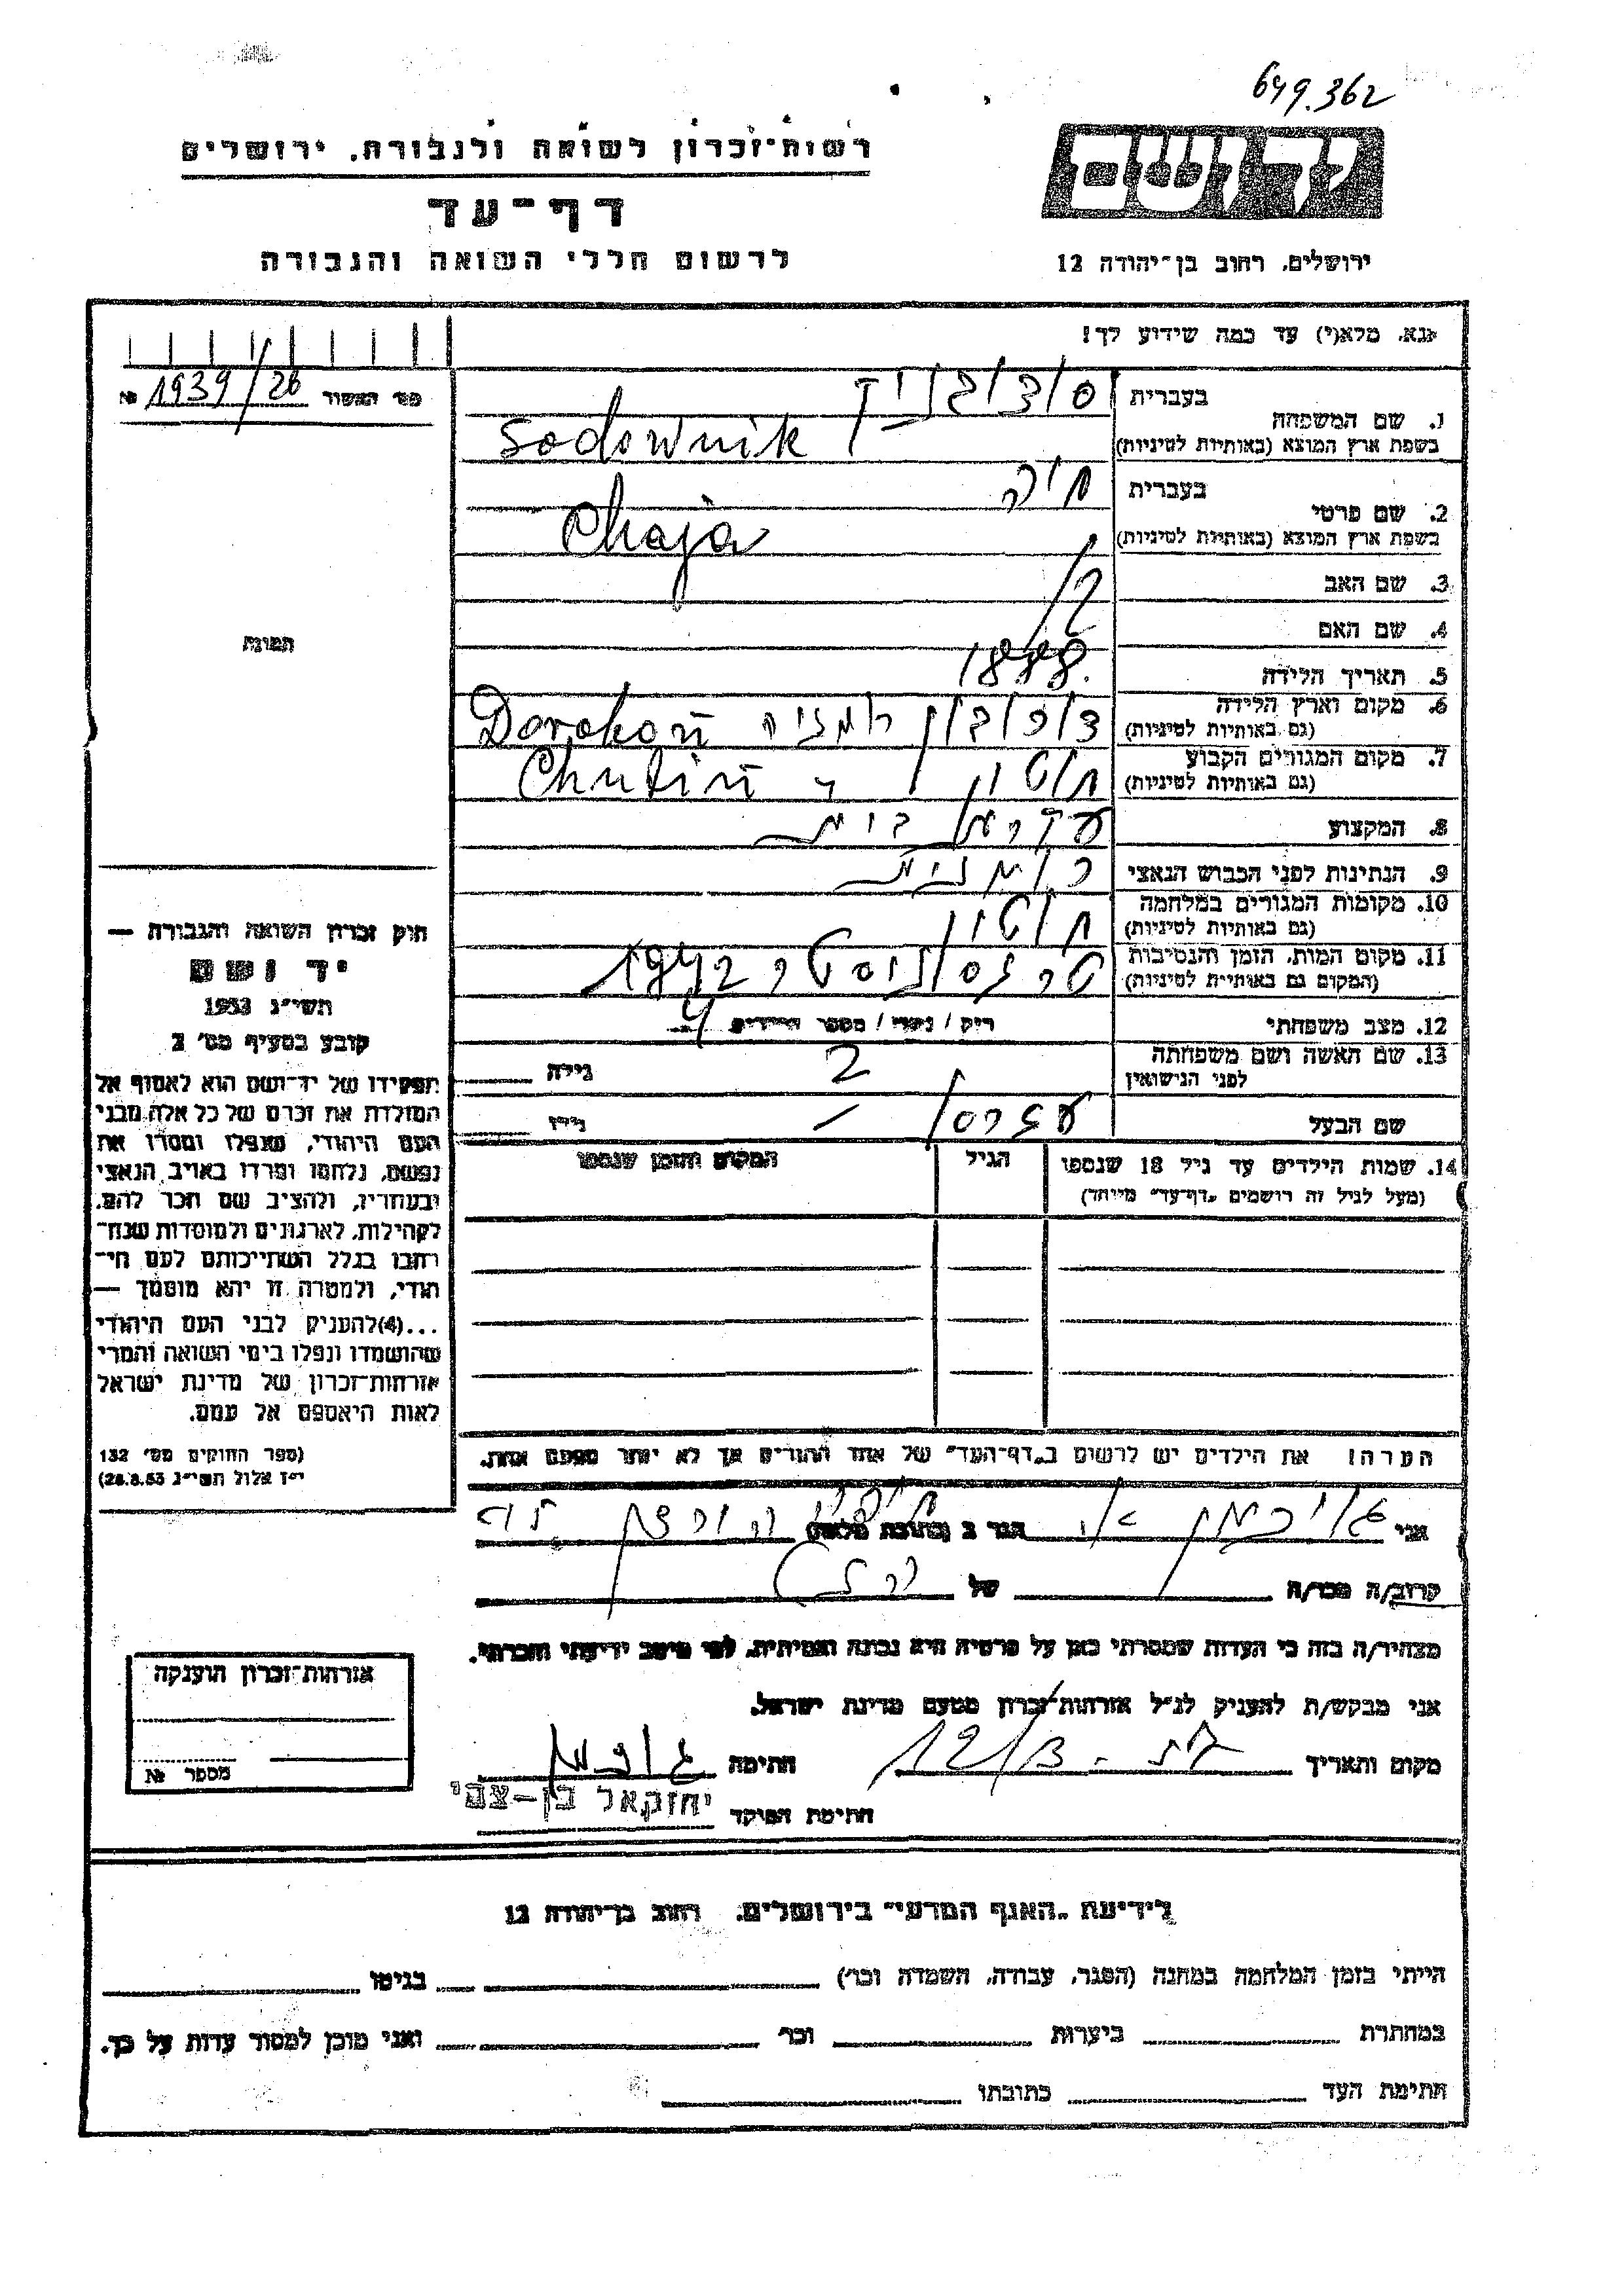 649.362
רשות־זכרון לשואה ולגבורה, ירושלים
יד ושם
דף־עד
לרשום חללי השואה והגבורה
ירושלים, רחוב בן־יהודה 12
נא, מלא(י) עד כמה שידוע לך!
מס' האשור 1939/26 №
בעברית
1. שם המשפחה
בשפת ארץ המוצא (באותיות לטיניות) Sodownik
בעברית חיה
2. שם פרטי
בשפת ארץ המוצא (באותיות לטיניות) Chaja
3. שם האב
4. שם האם
תמונה
5. תאריך הלידה 1888.
6. מקום וארץ הלידה
(גם באותיות לטיניות)
7. מקום המגורים הקבוע חוטין
(גם באותיות לטיניות)
8. המקצוע עקרת בית
9. הנתינות לפני הכבוש הנאצי רומנית
10. מקומות המגורים במלחמה חוטין
(גם באותיות לטיניות)
11. מקום המות, הזמן והנסיבות טרנסניסטריה 1942
(המקום גם באותיות לטיניות)
12. מצב משפחתי רוק / נשוי / מספר הילדים 4
13. שם האשה ושם משפחתה גילה
לפני הנישואין
שם הבעל גילו
14. שמות הילדים עד גיל 18 שנספו הגיל המקום והזמן שנספו
(מעל לגיל זה רושמים „דף־עד" מיוחד)
חוק זכרון השואה והגבורה —
יד ושם
תשי"ג 1953
קובע בסעיף מס' 2
תפקידו של יד־ושם הוא לאסוף אל
המולדת את זכרם של כל אלה מבני
העם היהודי, שנפלו ומסרו את
נפשם, נלחמו ומרדו באויב הנאצי
ובעוזריו, ולהציב שם וזכר להם,
לקהילות, לארגונים ולמוסדות שנח־
רבו בגלל השתייכותם לעם הי־
הודי, ולמטרה זו יהא מוסמך —
...(4)להעניק לבני העם היהודי
שהושמדו ונפלו בימי השואה והמרי
אזרחות־זכרון של מדינת ישראל
לאות היאספם אל עמם.
(ספר החוקים מס' 132
י"ז אלול תשי"ג 28.8.53)
הערה! את הילדים יש לרשום ב„דף־העד" של אחד ההורים אך לא יותר מפעם אחת.
אני הגר ב (כתובת מלאה)
קרוב/ה מכר/ה של
מצהיר/ה בזה כי העדות שמסרתי כאן על פרטיה היא נכונה ואמיתית, לפי מיטב ידיעתי והכרתי.
אני מבקש/ת להעניק לנ"ל אזרחות־זכרון מטעם מדינת ישראל.
מקום ותאריך חתימה
חתימת הפוקד יחזקאל בן-צבי
אזרחות־זכרון הוענקה
מספר №
לידיעת „האגף המדעי" בירושלים, רחוב בן־יהודה 12
הייתי בזמן המלחמה במחנה (הסגר, עבודה, השמדה וכו') בגיטו
במחתרת ביערות וכו' ואני מוכן למסור עדות על כך.
חתימת העד כתובתו